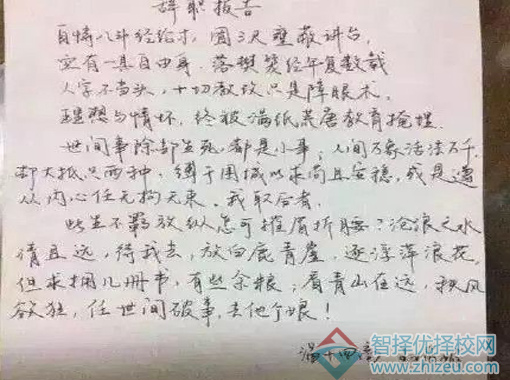 辞职报告
自恃八斗经纶才，囿三尺壁蔽讲台，
空有一具自由身，落樊笼经年复数载
人字不当头，十切教故只是障眼术，
理想与情怀，终被满纸荒唐教育掩埋
世间事除却生死，都是小事，人间万象活法万千，
却大抵只两种，缚于围城以求尚且安稳，或是遵
从内心任无拘无束，我取后者
此生不羁放纵怎可摧眉折腰？沧浪之水
清且远，待我去，放白鹿青崖，逐浮萍浪花，
但求拥几册书，有些余粮，看青山在远，秋风
欲狂，任世间破事，去他个娘！
智择优择校网
www.zhizeu.com